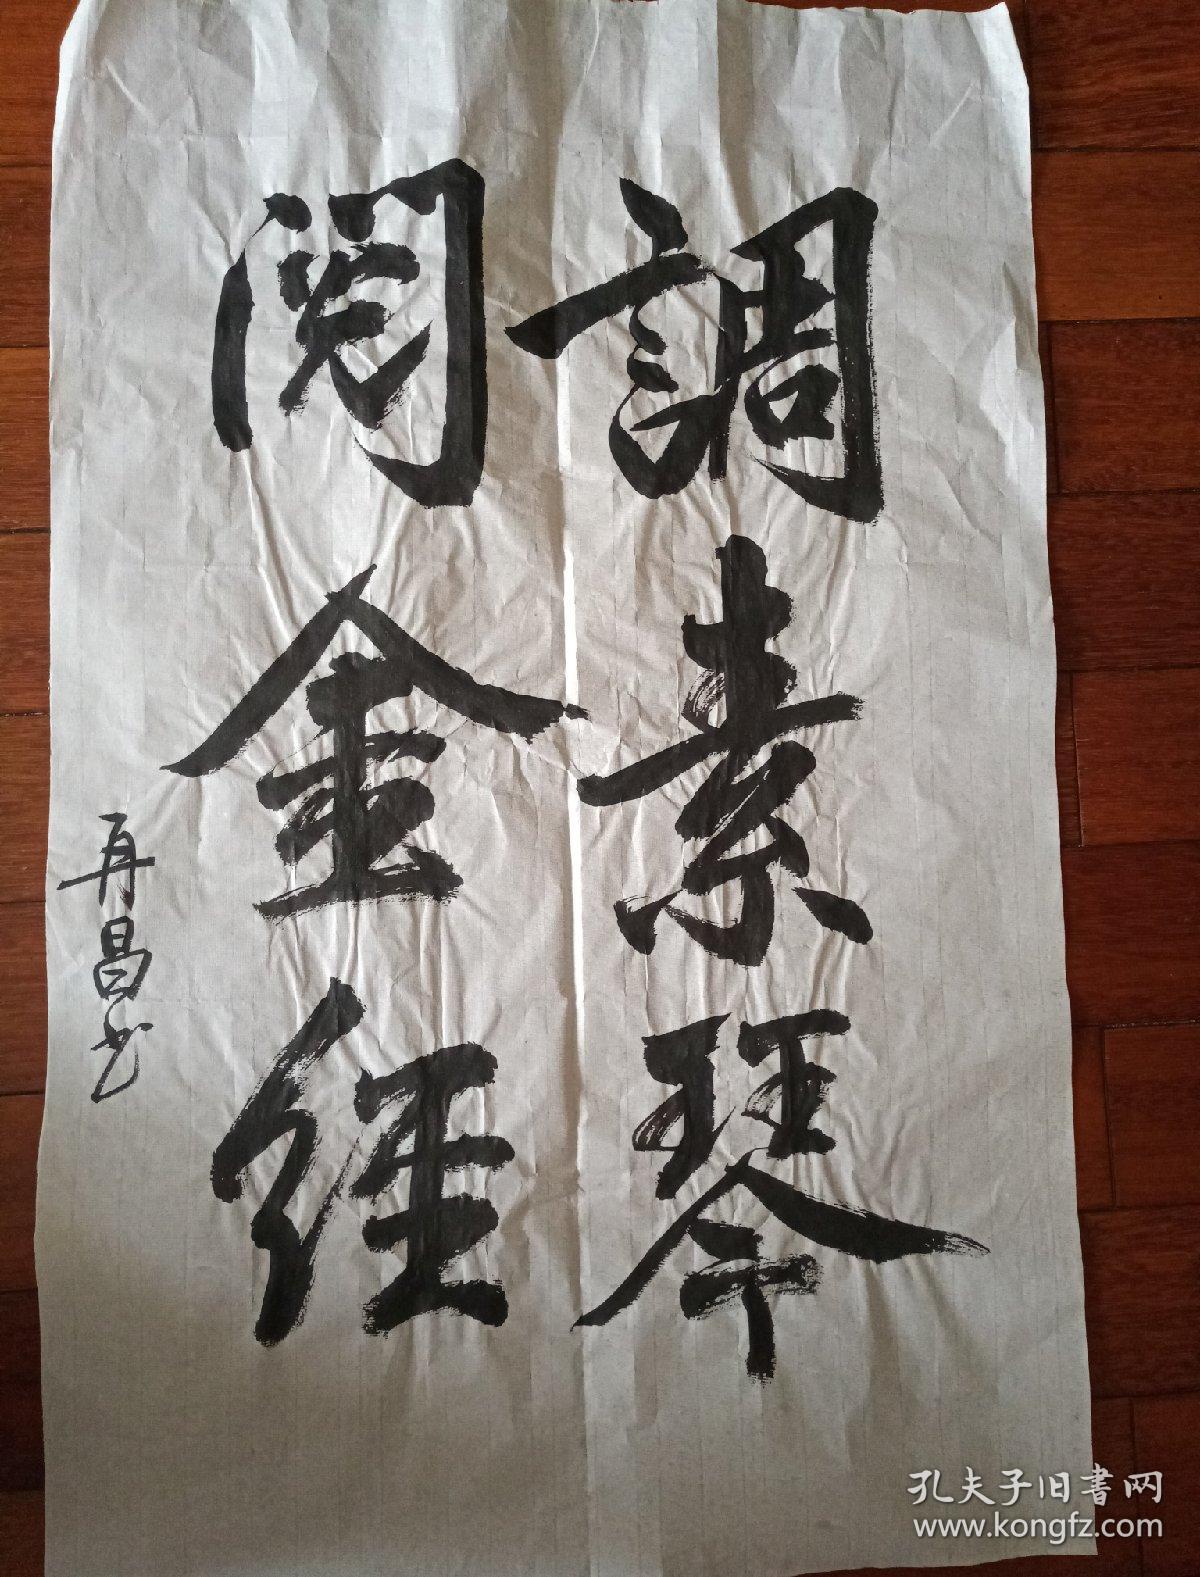 調素琴
阅金经
再昌书
孔夫子旧書网
www.kongfz.com